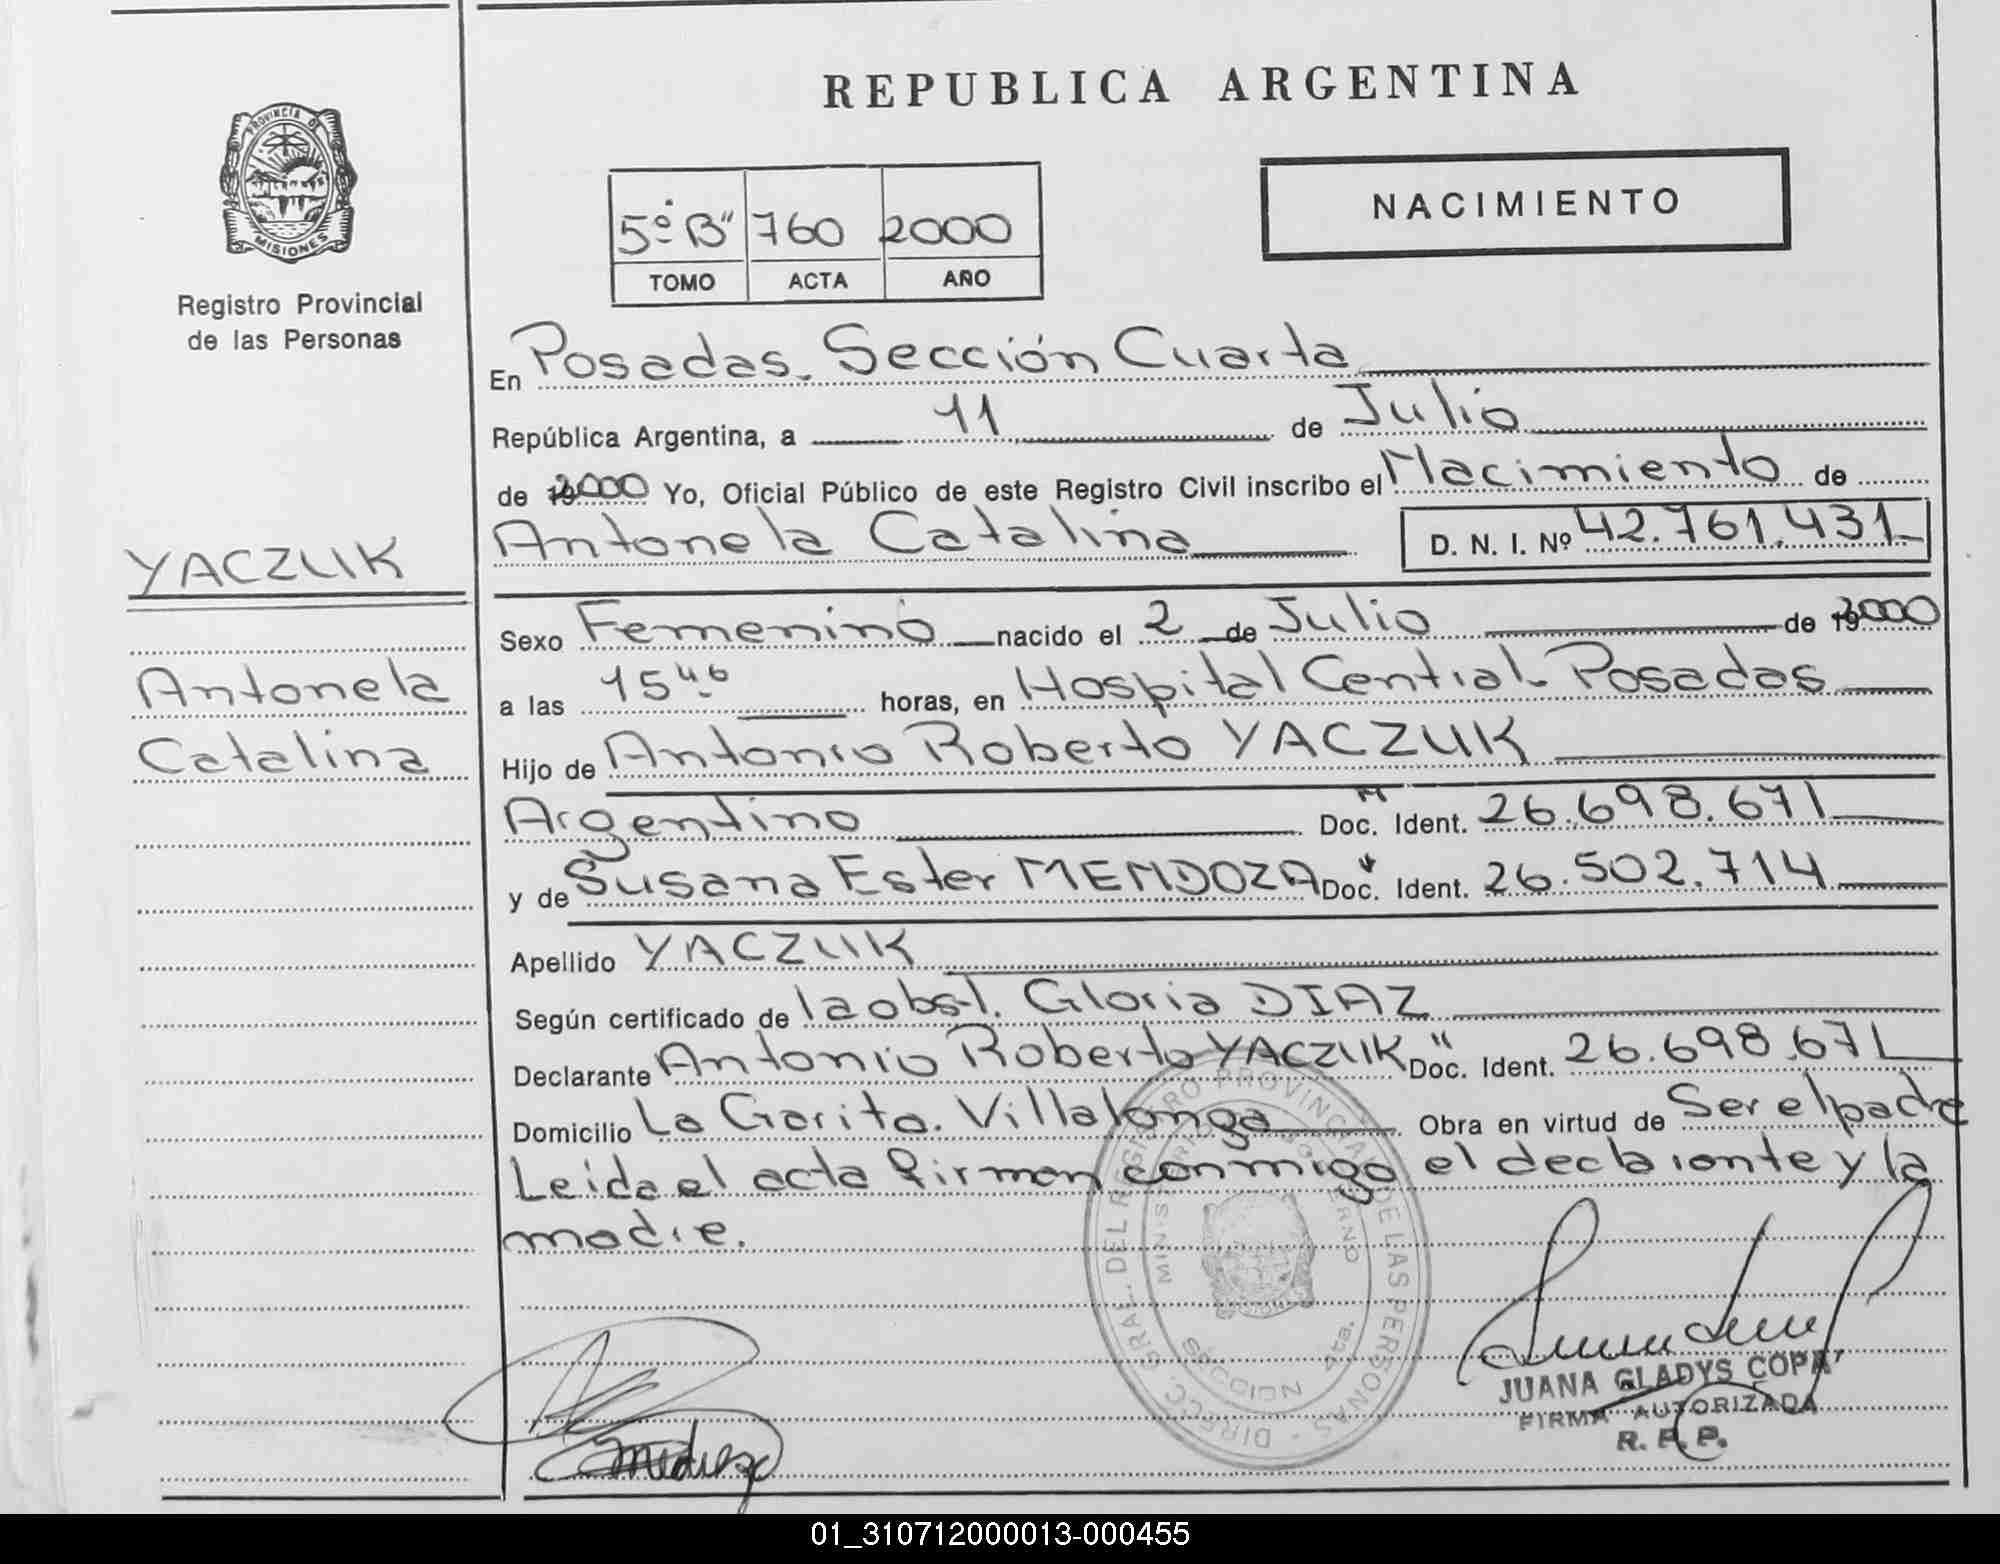 REPUBLICA ARGENTINA
PROVINCIA DE
MISIONES
Registro Provincial
de las Personas
NACIMIENTO
5º "B" 760 2000
TOMO ACTA AÑO
En Posadas. Sección Cuarta
República Argentina, a 11 de Julio
de 2000 Yo, Oficial Público de este Registro Civil inscribo el Nacimiento de
Antonela Catalina D. N. I. Nº 42.761.431
YACZUK
Antonela
Catalina
Sexo Femenino nacido el 2 de Julio de 2000
a las 15 46 horas, en Hospital Central. Posadas
Hijo de Antonio Roberto YACZUK
Argentino Doc. Ident. 26.698.671
y de Susana Ester MENDOZA Doc. Ident. 26.502.714
Apellido YACZUK
Según certificado de la obst. Gloria DIAZ
Declarante Antonio Roberto YACZUK Doc. Ident. 26.698.671
Domicilio La Garita. Villalonga Obra en virtud de Ser el padre
Leída el acta firman conmigo el declarante y la
madre.
DIRECC. GRAL. DEL REGISTRO PROVINCIAL DE LAS PERSONAS
JUANA GLADYS COPA
FIRMA AUTORIZADA
R. P. P.
01_310712000013-000455